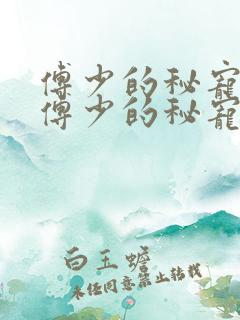 傅少的秘宠
傅少的秘宠
白玉蟾
未经同意禁止转载